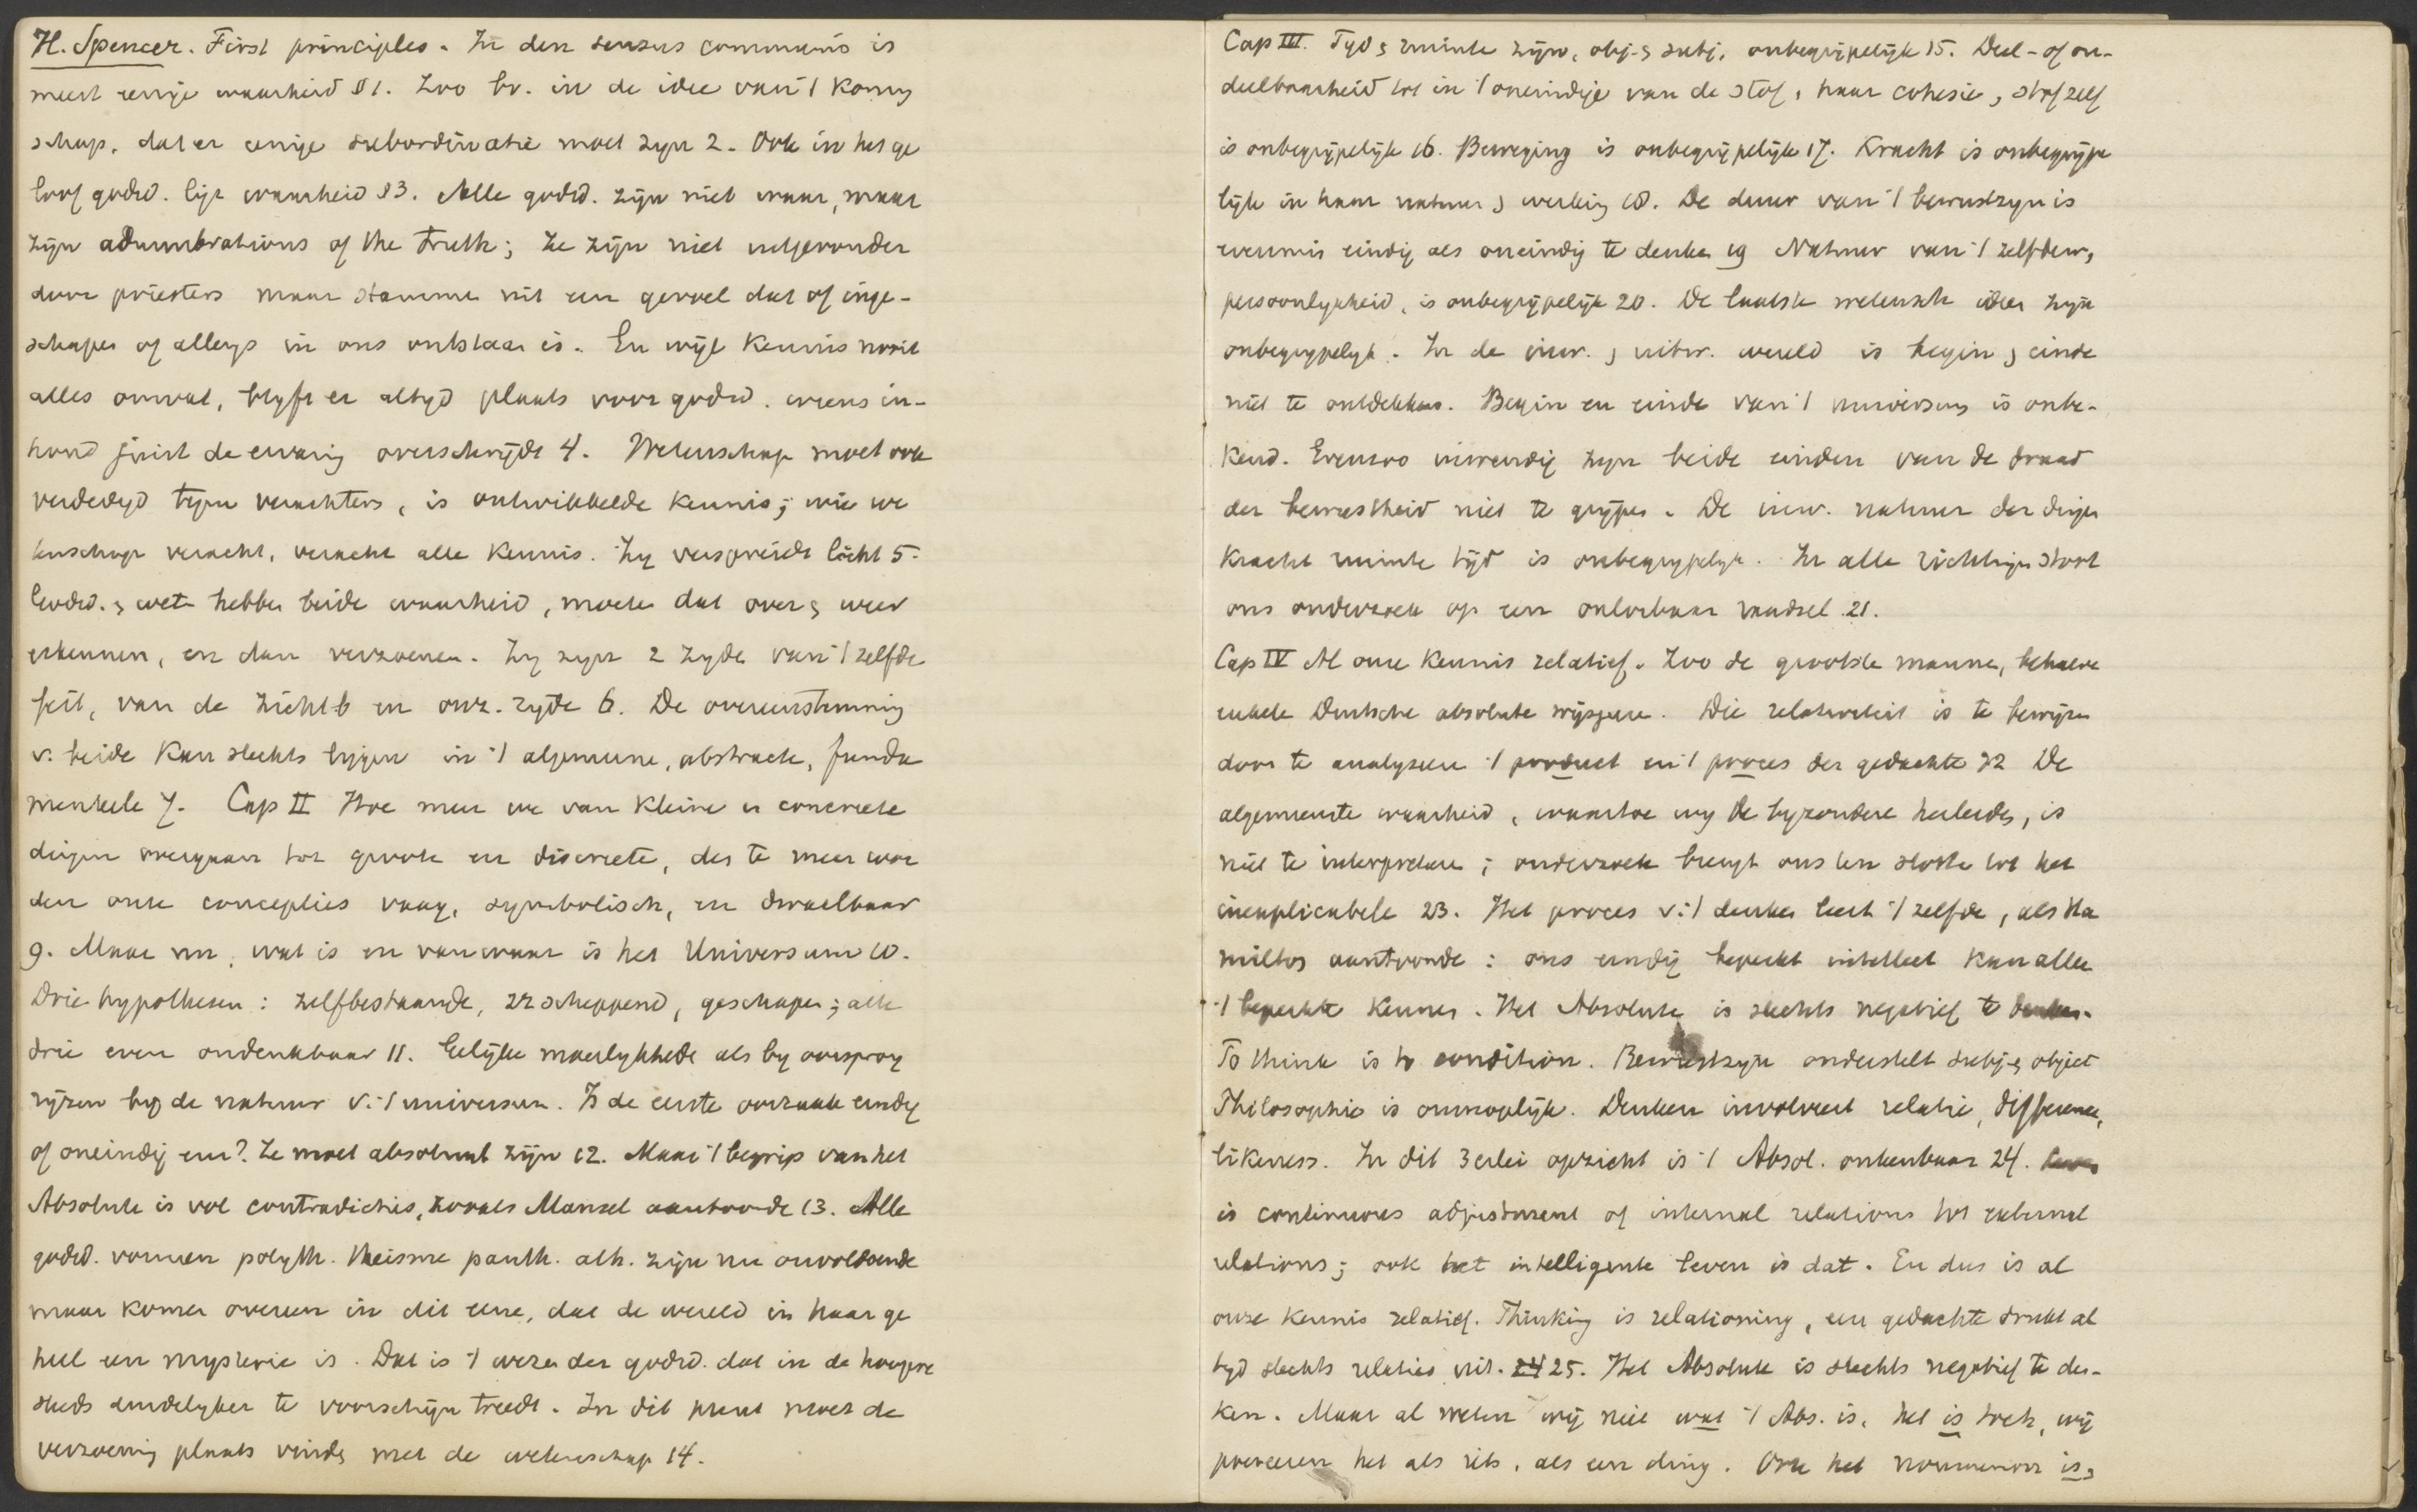 H. Spencer. First principles. In den sensus communis is
meest eenige waarheid § 1. Zoo bv. in de idee van 't koning
schap, dat er eenige subordinatie moet zyn 2. Ook in het ge
loof godsd. ligt waarheid § 3. Alle godsd. zijn niet waar, maar
zijn adumbrations of the truth; ze zijn niet uitgevonden
door priesters maar stammen uit een gevoel dat of inge-
schapen of allengs in ons ontstaan is. En wijl kennis nooit
alles omvat, blyft er altyd plaats voor godsd. wiens in-
houd juist de ervaring overschrijdt 4. Wetenschap moet ook
verdedigd tegen verachters, is ontwikkelde kennis; wie we
tenschap veracht, veracht alle kennis. Zy verspreidt licht 5.
Godsd. & wet. hebben beide waarheid, moeten dat over & weer
erkennen, en dan verzoenen. Zy zyn 2 zyden van 't zelfde
feit, van de zichtb en onz. zyde 6. De overeenstemming
v. beide kan slechts liggen in 't algemeene, abstracte, funda
menteele 7. Cap II Hoe meer we van kleine en concrete
dingen overgaan tot groote en discrete, des te meer wor
den onze concepties vaag, symbolisch, en dwaalbaar
9. Maar nu, wat is en van waar is het Universum 10.
Drie hypothesen: zelfbestaande, zz scheppend, geschapen; alle
drie even ondenkbaar 11. Gelijke moeilykheden als by oorsprong
rijzen by de natuur v. 't universum. Is de eerste oorzaak eindig
of oneindig enz? Ze moet absoluut zijn 12. Maar 't begrip van het
Absolute is vol contradicties, zooals Mansel aantoonde 13. Alle
godsd. vormen polyth. theisme panth. ath. zijn nu onvoldoende
maar komen overeen in dit eene, dat de wereld in haar ge
heel een mysterie is. Dat is 't wezen der godsd. dat in de hoogere
steeds duidelyker te voorschijn treedt. In dit punt moet de
verzoening plaats vinden met de wetenschap 14.
Cap III. Tyd & ruimte zijn, obj. & subj. onbegrijpelijk 15. Deel- of on-
deelbaarheid tot in 't oneindige van de stof, haar cohesie, stof zelf
is onbegrijpelijk 16. Beweging is onbegrijpelijk 17. Kracht is onbegrijpe
lijk in haar natuur & werking 18. De duur van 't bewustzyn is
evenmin eindig als oneindig te denken 19 Natuur van 't zelf den,
persoonlykheid, is onbegrijpelijk 20. De laatste wetensch ideen zyn
onbegrypelyk. In de inw. & uitw. wereld is begin & einde
niet te ontdekken. Begin en einde van 't universum is onbe-
kend. Evenzoo inwendig zyn beide einden van de draad
der bewustheid niet te grijpen. De inw. natuur der dingen
kracht ruimte tijd is onbegrypelyk. In alle richtingen stoot
ons onderzoek op een onlosbaar raadsel 21.
Cap IV Al onze kennis relatief. Zoo de grootste mannen, behalve
enkele Duitsche absolute wijsgeeren. Die relativiteit is te bewijzen
door te analyseeren 't product en 't proces der gedachte 22 De
algemeenste waarheid, waartoe wy de byzondere herleiden, is
niet te interpreteeren; onderzoek brengt ons ten slotte tot het
inexplicabele 23. Het proces v. 't denken leert 't zelfde, als Ha
milton aantoonde: ons eindig beperkt intellect kan alleen
't beperkte kennen. Het Absolute is slechts negatief te denken.
To think is to condition. Bewustzyn onderstelt subj. & object
Philosophie is onmogelijk. Denken involveert relatie, difference,
likeness. In dit 3 erlei opzicht is 't Absol. onkenbaar 24. Leven
is continuous adjustment of internal relations tot external
relations; ook het intelligente leven is dat. En dus is al
onze kennis relatief. Thinking is relationing, een gedachte drukt al
tyd slechts relaties uit. 24 25. Het Absolute is slechts negatief te den-
ken. Maar al weten wij niet wat 't Abs. is, het is toch, wij
poneeren het als iets, als een ding. Ook het noumenon is,